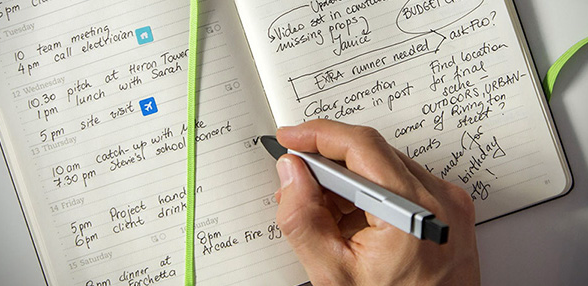 5pm
Tuesday
10 team meeting
4pm call electrician
12 Wednesday
10.30 pitch at Heron Tower
1pm lunch with Sarah
5pm site visit
13 Thursday
10am Catch-up with
7.30pm Steve's school concert
14 Friday
5pm Project hand in
6pm client drink
15 Saturday
8pm dinner at
Forchetta
Sunday
8pm
Arcade Fire gig
Video set in
missing props?
Janice
BUDGET
EXTRA runner needed
ask FLO?
Colour correction
be done in post
Find location
for final
scene —
OUTDOORS, URBAN-
corner of Rivington
street?
Leads
for
birthday